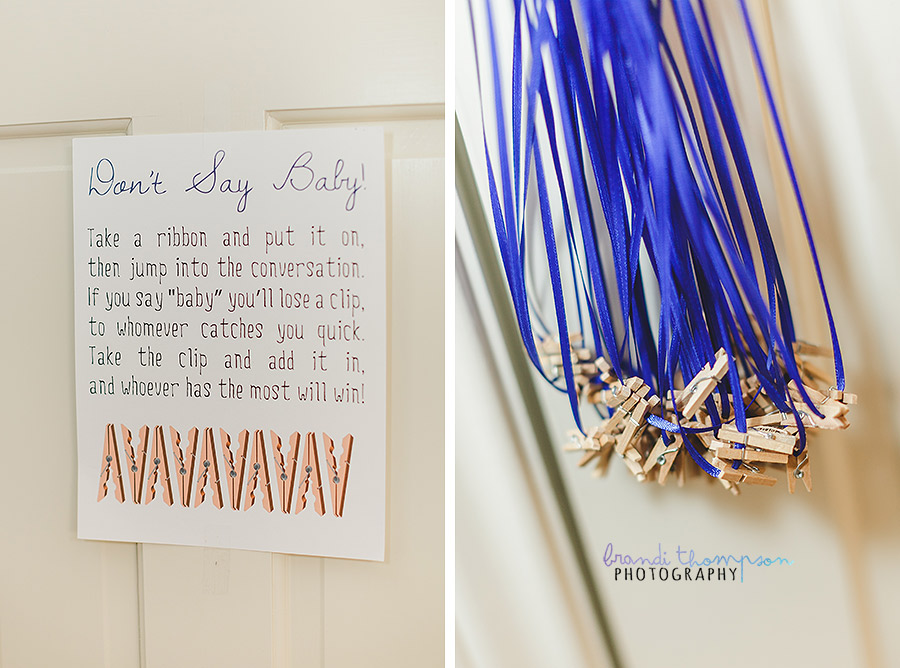 Don't Say Baby!
Take a ribbon and put it on,
then jump into the conversation.
If you say "baby" you'll lose a clip,
to whomever catches you quick.
Take the clip and add it in,
and whoever has the most will win!
brandi thompson
PHOTOGRAPHY